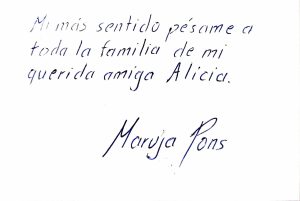 Mi más sentido pésame a
toda la familia de mi
querida amiga Alicia.
Maruja Pons